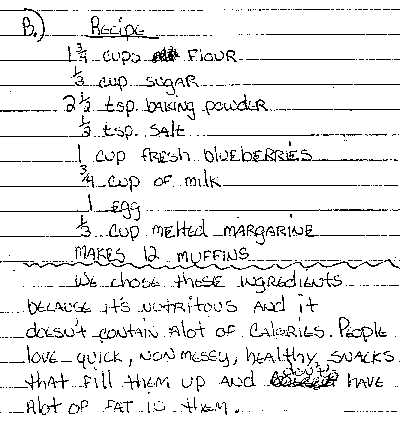 B.) Recipe
1 3/4 cups flour
1/3 cup sugar
2 1/2 tsp. baking powder
1/2 tsp. salt
1 cup fresh blueberries
3/4 cup of milk
1 egg
1/3 cup melted margarine
makes 12 muffins
We chose these ingredients
because it's nutritous and it
doesn't contain alot of calories. People
love quick, non messy, healthy, snacks
that fill them up and don't have
alot of fat in them.